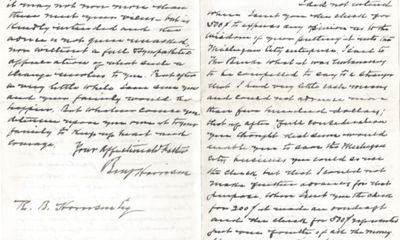 it may not now more than
these meet your views. but is
kindly intended and the
advice is not given unasked,
nor without a full sympathetic
appreciation of what such a
change involves to you. But after
a very little while I am sure you
and your family would be
happier. But whatever course you
determine upon you owe it to your
family to keep up heart and
courage.
Your Affectionate Father
Benj Harrison
R. B. Harrison Esq
I did not intend
when I sent you the check for
500$ to express any opinion as to the
wisdom of your putting it into the
Michigan City enterprise. I said to
Mr
what it was
to be compelled to say to a stranger
that I had very little cash means
and could not advance more
than five hundred dollars;
that if after full consideration
you thought that sum would
enable you to save the Michigan
City business you could so use
the check but that I could not
make further advances for that
purpose. When I sent you the check
for 500$ it
and the check for 500$ represents
just one fourth of all the money